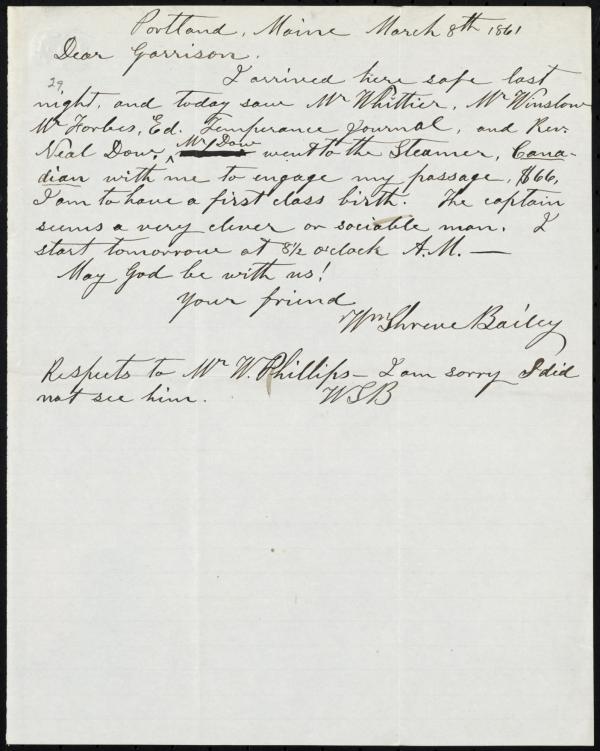 Portland, Maine March 8th 1861
Dear Garrison.
29
I arrived here safe last
night, and today saw Mr Whittier, Mr Winslow
Mr Forbes, Ed. Temperance Journal, and Rev.
Neal Dow, ^ Mr Dow went to the Steamer, Cana-
dian with me to engage my passage, $66,
I am to have a first class birth. The captain
seems a very clever or sociable man. I
start tomorrow at 8½ o'clock A.M. —
May God be with us!
Your friend
Wm Shreve Bailey
Respects to Mr W. Phillips – I am sorry I did
not see him. WSB